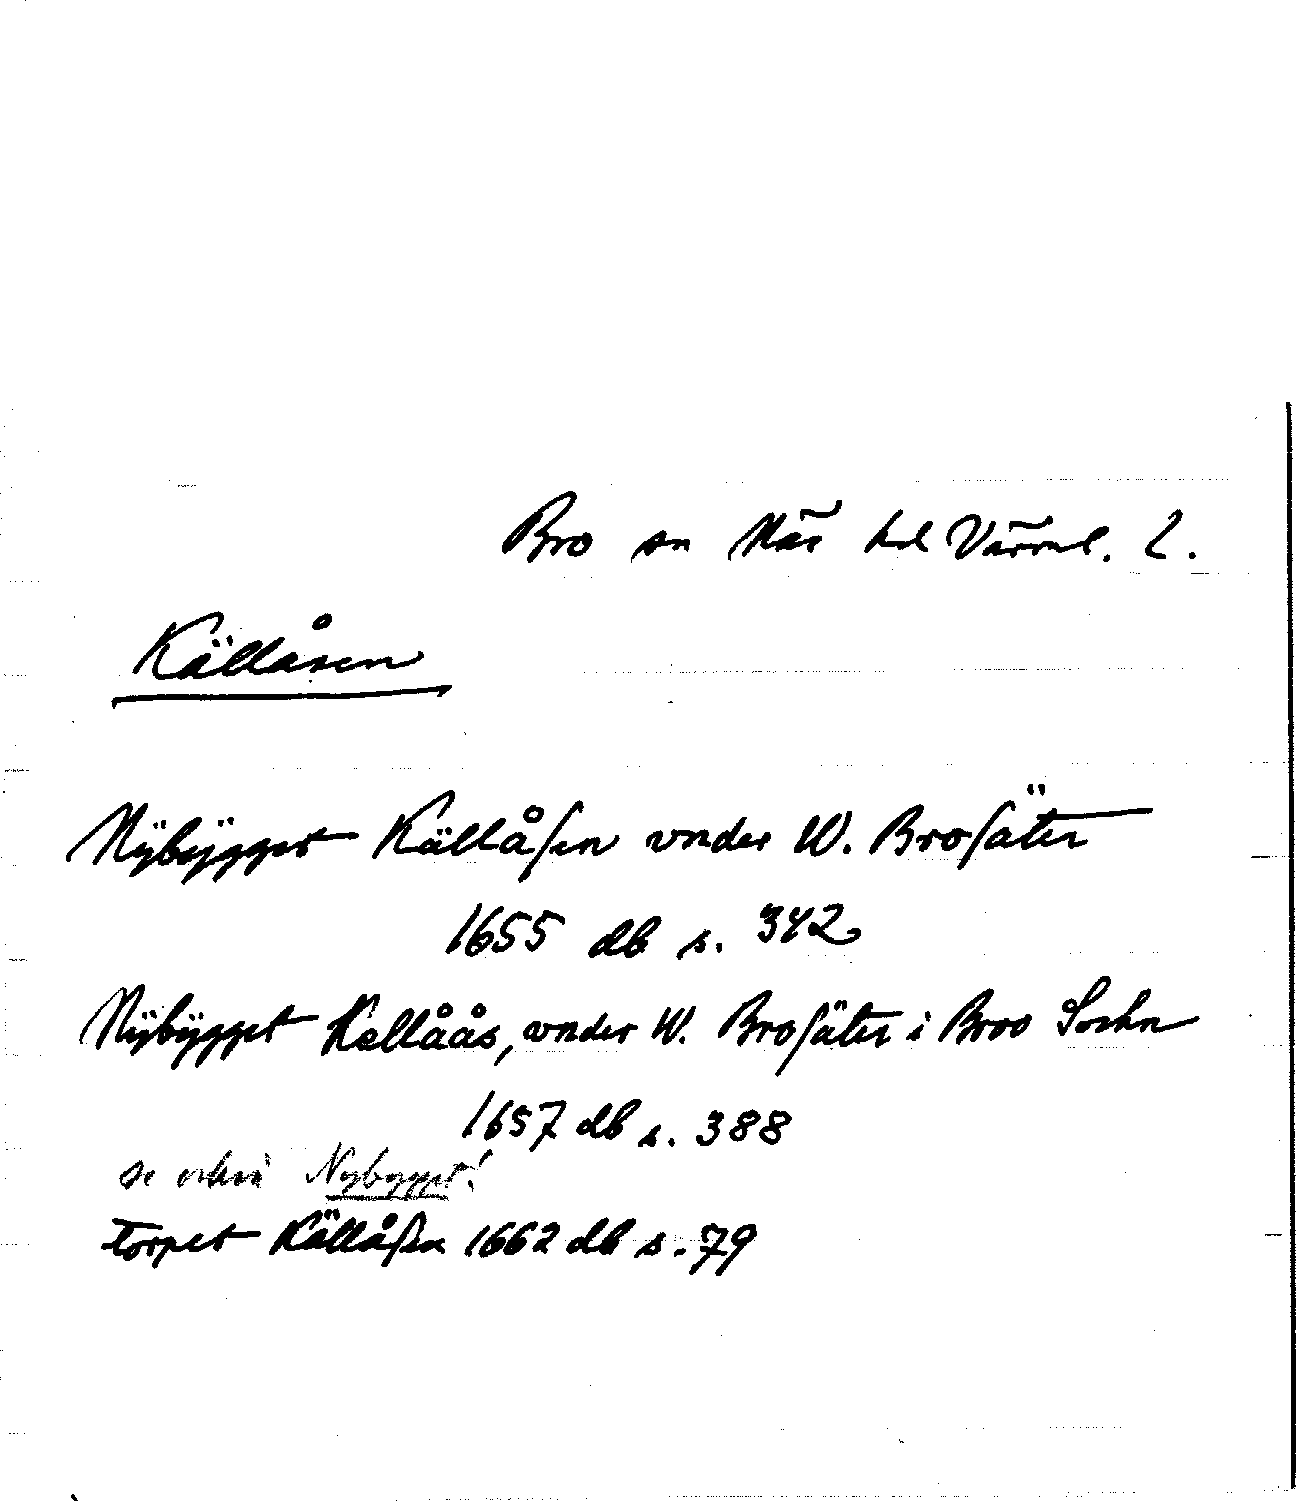 Bro sn Näs hd Värml. L.
Källåsen
Nÿbÿgget Källåſen vnder W. Broſäter
1655 db s. 342
Nÿbÿgget Kellåås, vnder W. Broſäter i Broo Sochn
1657 db s. 388
se också Nybygget!
torpet Källåſen 1662 db s. 79